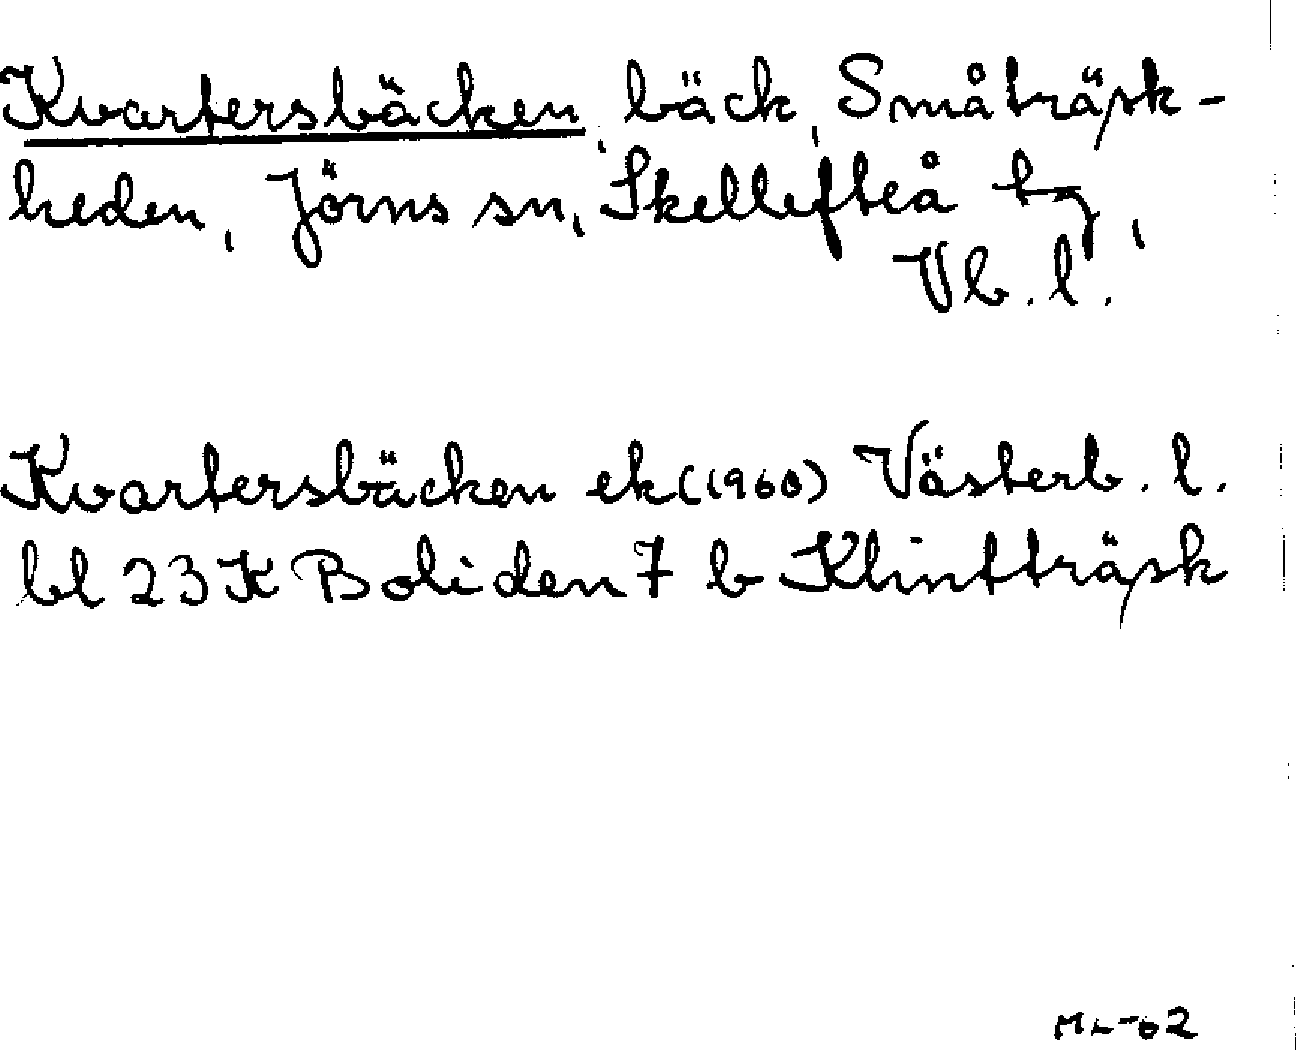 Kvartersbäcken, bäck, Småträsk-
heden, Jörns sn, Skellefteå tg,
Vb. l.
Kvartersbäcken ek (1960) Västerb. l.
bl 23 K Boliden 7 b Klintträsk